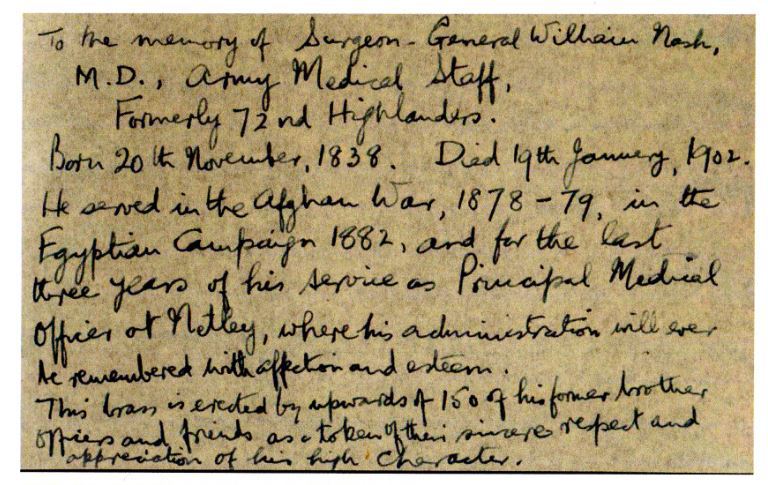 To the memory of Surgeon-General William Nash,
M.D., Army Medical Staff,
Formerly 72nd Highlanders.
Born 20th November, 1838. Died 19th January, 1902.
He served in the Afghan War, 1878-79, in the
Egyptian Campaign 1882, and for the last
three years of his service as Principal Medical
Officer at Netley, where his administration will ever
be remembered with affection and esteem.
This brass is erected by upwards of 150 of his former brother
officers and friends as a token of their sincere respect and
appreciation of his high character.